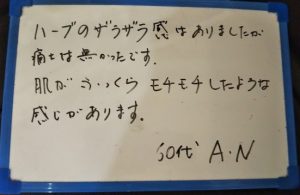 ハーブのザラザラ感はありましたが
痛みは無かったです。
肌がふっくらモチモチしたような
感じがあります。
50代 A・N